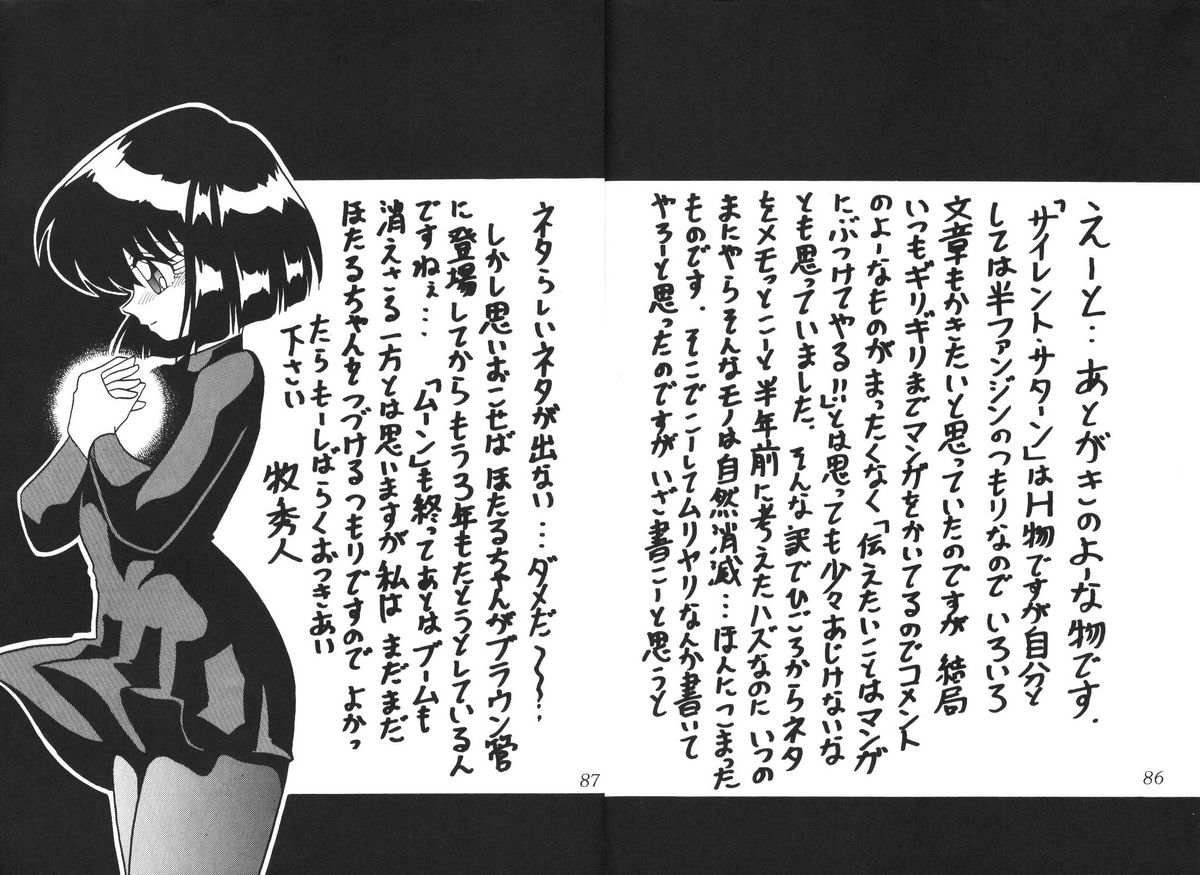 えーと‥あとがきのよーな物です.
「サイレント・サターン」はH物ですが自分と
しては半ファンジンのつもりなので いろいろ
文章もかきたいと思っていたのですが 結局
いつもギリギリまでマンガをかいてるのでコメント
のよーなものがまったくなく「伝えたいことはマンガ
にぶつけてやる!!」とは思っても少々あじけないな
とも思っていました. そんな訳でひごろからネタ
をメモっとこーと半年前に考えたハズなのに いつの
まにやらそんなモノは自然消滅…ほんにこまった
ものです. そこでこーしてムリヤリなんか書いて
やろーと思ったのですが いざ書こーと思うと
86
ネタらしいネタが出ない…ダメだ〜〜.
しかし思いおこせば ほたるちゃんがブラウン管
に登場してからもう3年もたとうとしているん
ですねぇ…. 「ムーン」も終ってあとはブームも
消えさる一方とは思いますが 私は まだまだ
ほたるちゃんをつづけるつもりですので よかっ
たらもーしばらくおつきあい
下さい
牧秀人
87